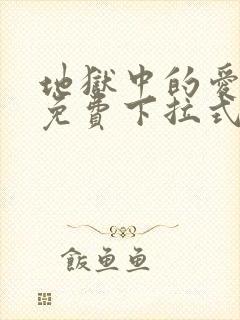 地獄中的愛
免費下拉式
飯魚魚